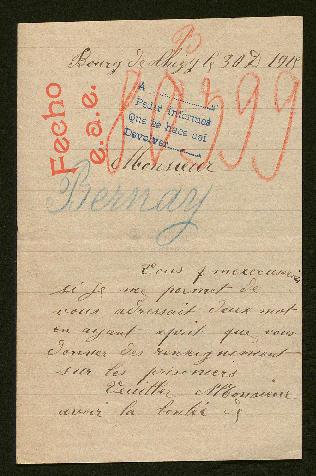 Bourg de Thizy le 30 D 1915
P
80599
Fecho
e.a.e.
A
Pedir informes
Que se hace así
Devolver
Monsieur
Bernay
Vous
si je me permet de
vous adressait deux mot
en ayant apris que vous
donner des renzeignement
sur les prisoniers
Veuillez Monsieur
avoir la bonté